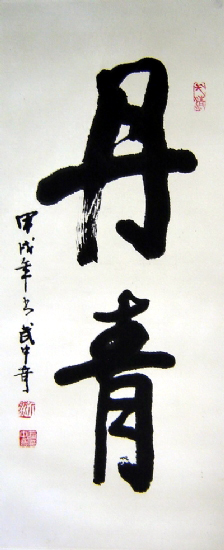 丹青
甲戌年书武中奇